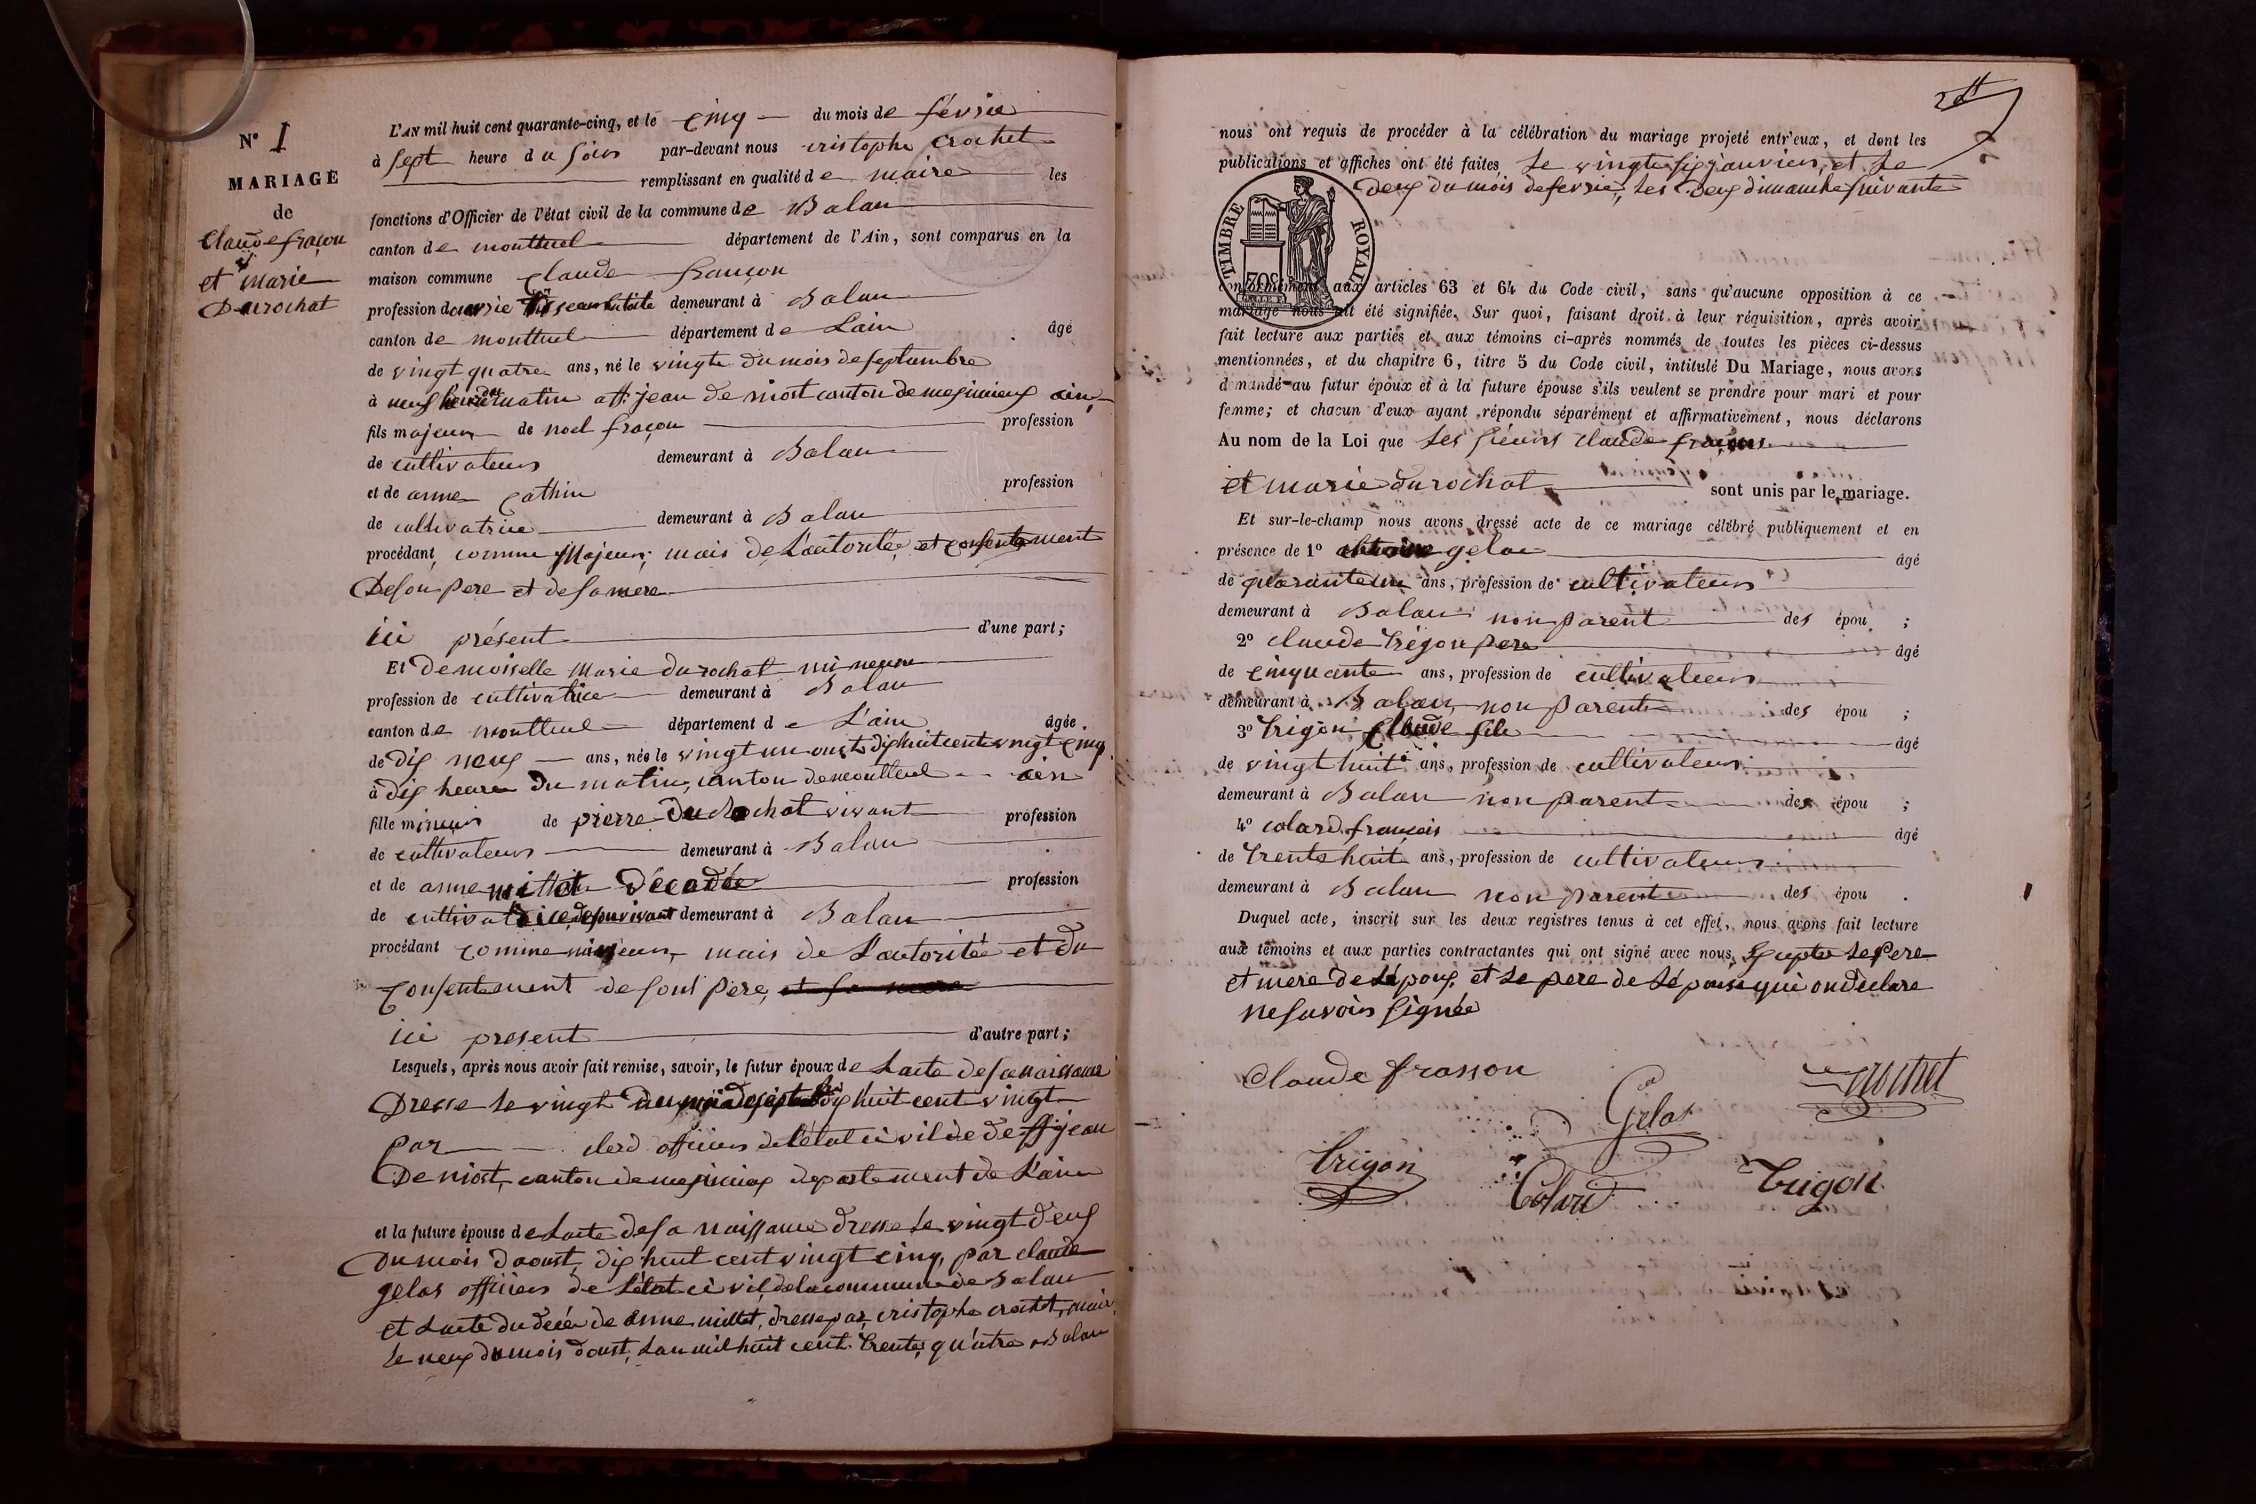 N° 1
MARIAGE
de
Claude fraçon
et marie
Durochat
L'AN mil huit cent quarante-cinq, et le cinq du mois de févrie
à sept heure du soir par-devant nous cristophe crochet
remplissant en qualité de maire les
fonctions d'Officier de l'état civil de la commune de Balan
canton de montluel département de l'Ain, sont comparus en la
maison commune Claude françon
profession d demeurant à Balan
canton de montluel département de Lain âgé
de vingt quatre ans, né le vingte du mois de septambre
à neuf heure du matin a st jean de niost canton de meximieux ain
fils majeur de noel fraçon profession
de cultivateur demeurant à Balan
et de anne cathin profession
de cultivatrice demeurant à Balan
procédant, comme Majeur, mais de L'autorité, et consentement
De son pere et de sa mere
ici présent d'une part;
Et Demoiselle Marie durochat mineure
profession de cultivatrice demeurant à Balan
canton de montluel département de L'ain âgée
de dix neuf ans, née le vingt un oust dix huit cent vingt cinq
à dix heure du matin, canton de montluel ain
fille mineur de pierre Durochat vivant profession
de cultivateur demeurant à Balan
et de anne millet Décedée profession
de cultivatrice de son vivant demeurant à Balan
procédant comme mineur mais de L'autorité et du
Consentement de sont pere, et sa mere
ici present d'autre part;
Lesquels, après nous avoir fait remise, savoir, le futur époux de Lacte de sa naissance
Dresse le vingt du mois de septambre dix huit cent vingt
par officier de l'état civil de st jean
De niost, canton de meximieux departement de L'ain
et la future épouse de Lacte de sa naissance dresse le vingt deux
Du mois d'aoust, dix huit cent vingt cinq, par claude
gelas officier de L'état civil de la commune de Balan
et Lacte du décée de anne millet, dresse par cristophe crochet, maire
le neuf du mois d'oust, L'an mil huit cent trente quatre a Balan
2
nous ont requis de procéder à la célébration du mariage projeté entr'eux, et dont les
publications et affiches ont été faites le vingte six janvier, et le
deux du mois de fevrie, les Deux dimanche suivante
TIMBRE ROYAL
70c
conformément aux articles 63 et 64 du Code civil, sans qu'aucune opposition à ce
mariage nous ait été signifiée. Sur quoi, faisant droit à leur réquisition, après avoir
fait lecture aux parties et aux témoins ci-après nommés de toutes les pièces ci-dessus
mentionnées, et du chapitre 6, titre 5 du Code civil, intitulé Du Mariage, nous avons
demandé au futur époux et à la future épouse s'ils veulent se prendre pour mari et pour
femme; et chacun d'eux ayant répondu séparément et affirmativement, nous déclarons
Au nom de la Loi que Les sieurs claude françon
et marie durochat sont unis par le mariage.
Et sur-le-champ nous avons dressé acte de ce mariage célébré publiquement et en
présence de 1° antoine gelas âgé
de quarante un ans, profession de cultivateur
demeurant à Balan non parent des épou ;
2° claude trégon pere âgé
de cinquante ans, profession de cultivateur
demeurant à Balan, non parent des épou ;
3° trigon Claude fils âgé
de vingt huit ans, profession de cultivateur
demeurant à Balan non parent des épou ;
4° colard françois âgé
de trente huit ans, profession de cultivateur
demeurant à Balan non parent des épou .
Duquel acte, inscrit sur les deux registres tenus à cet effet, nous avons fait lecture
aux témoins et aux parties contractantes qui ont signé avec nous, Excepte le pere
et mere de L'époux, et le pere de L'épouse qui on declare
ne savoir signée
Claude frasson
Crochet
Gelas
trigon
Colard
trigon